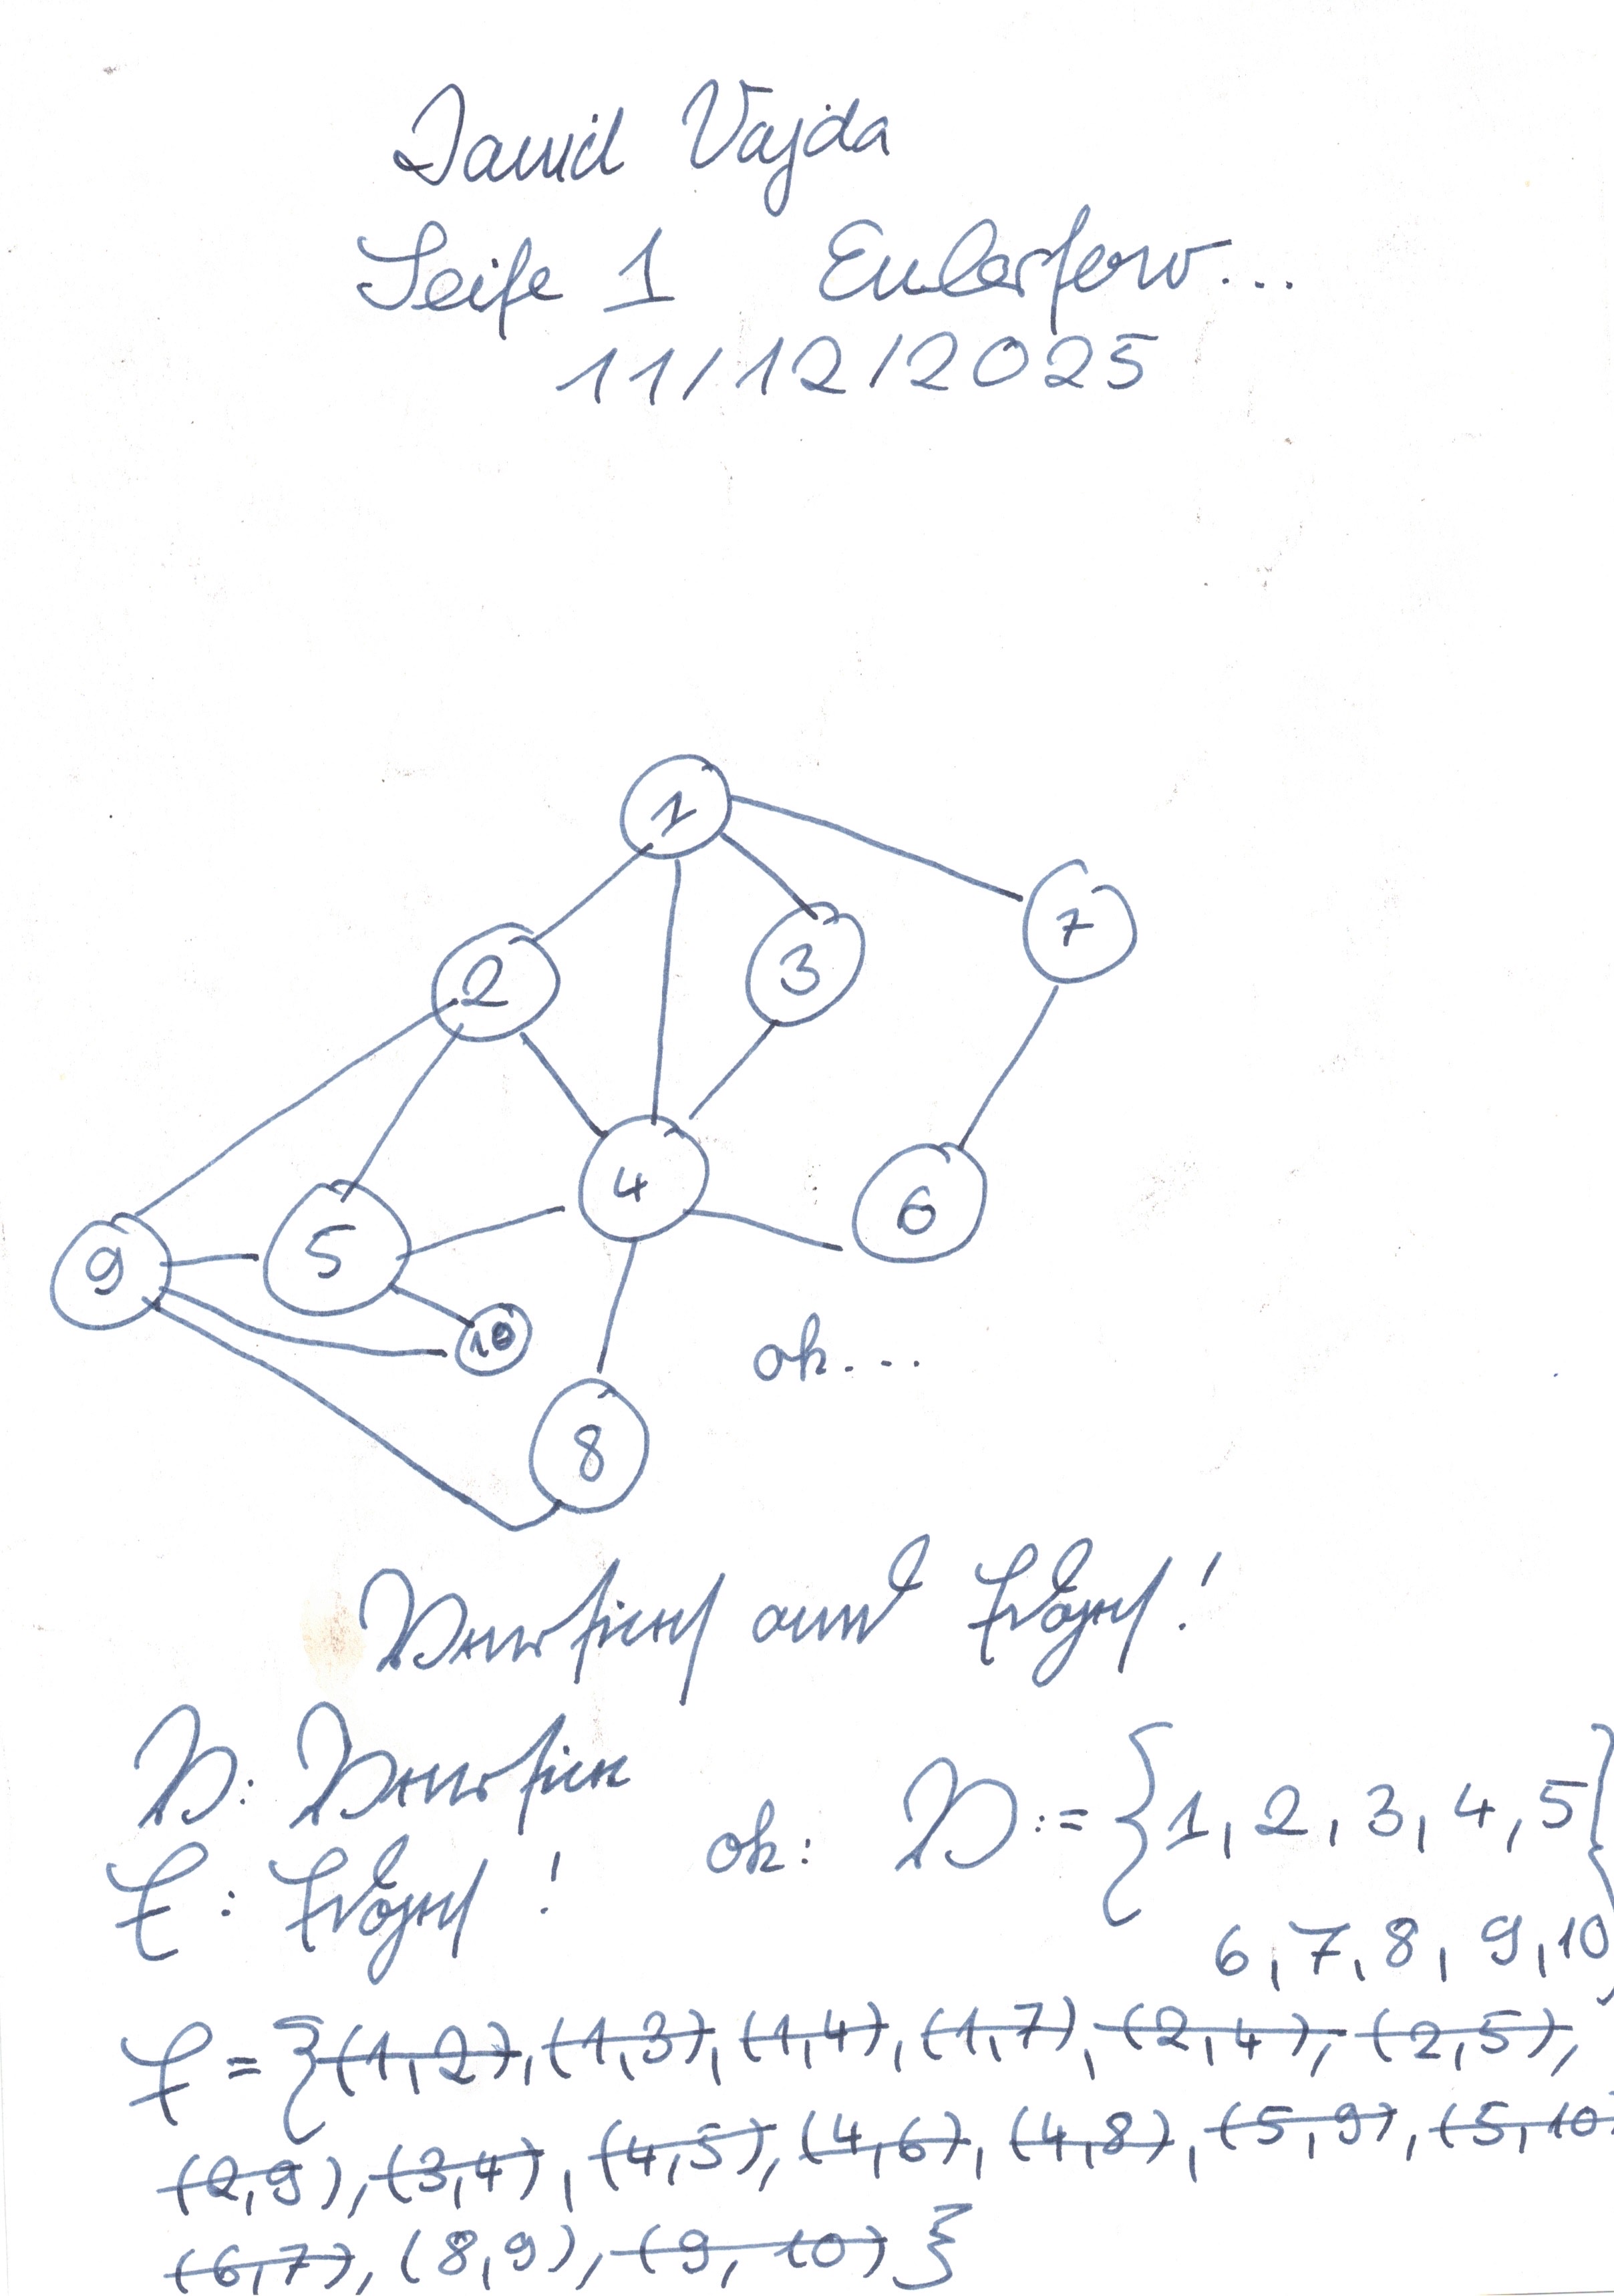 David Vajda
Seite 1 Eulerford...
11/12/2025
1
7
2
3
4
6
9
5
10
ok...
8
!
ok: := {1, 2, 3, 4, 5
E: !
6, 7, 8, 9, 10}
E = {(1,2), (1,3), (1,4), (1,7), (2,4), (2,5),
(2,9), (3,4), (4,5), (4,6), (4,8), (5,9), (5,10
(6,7), (8,9), (9,10)}